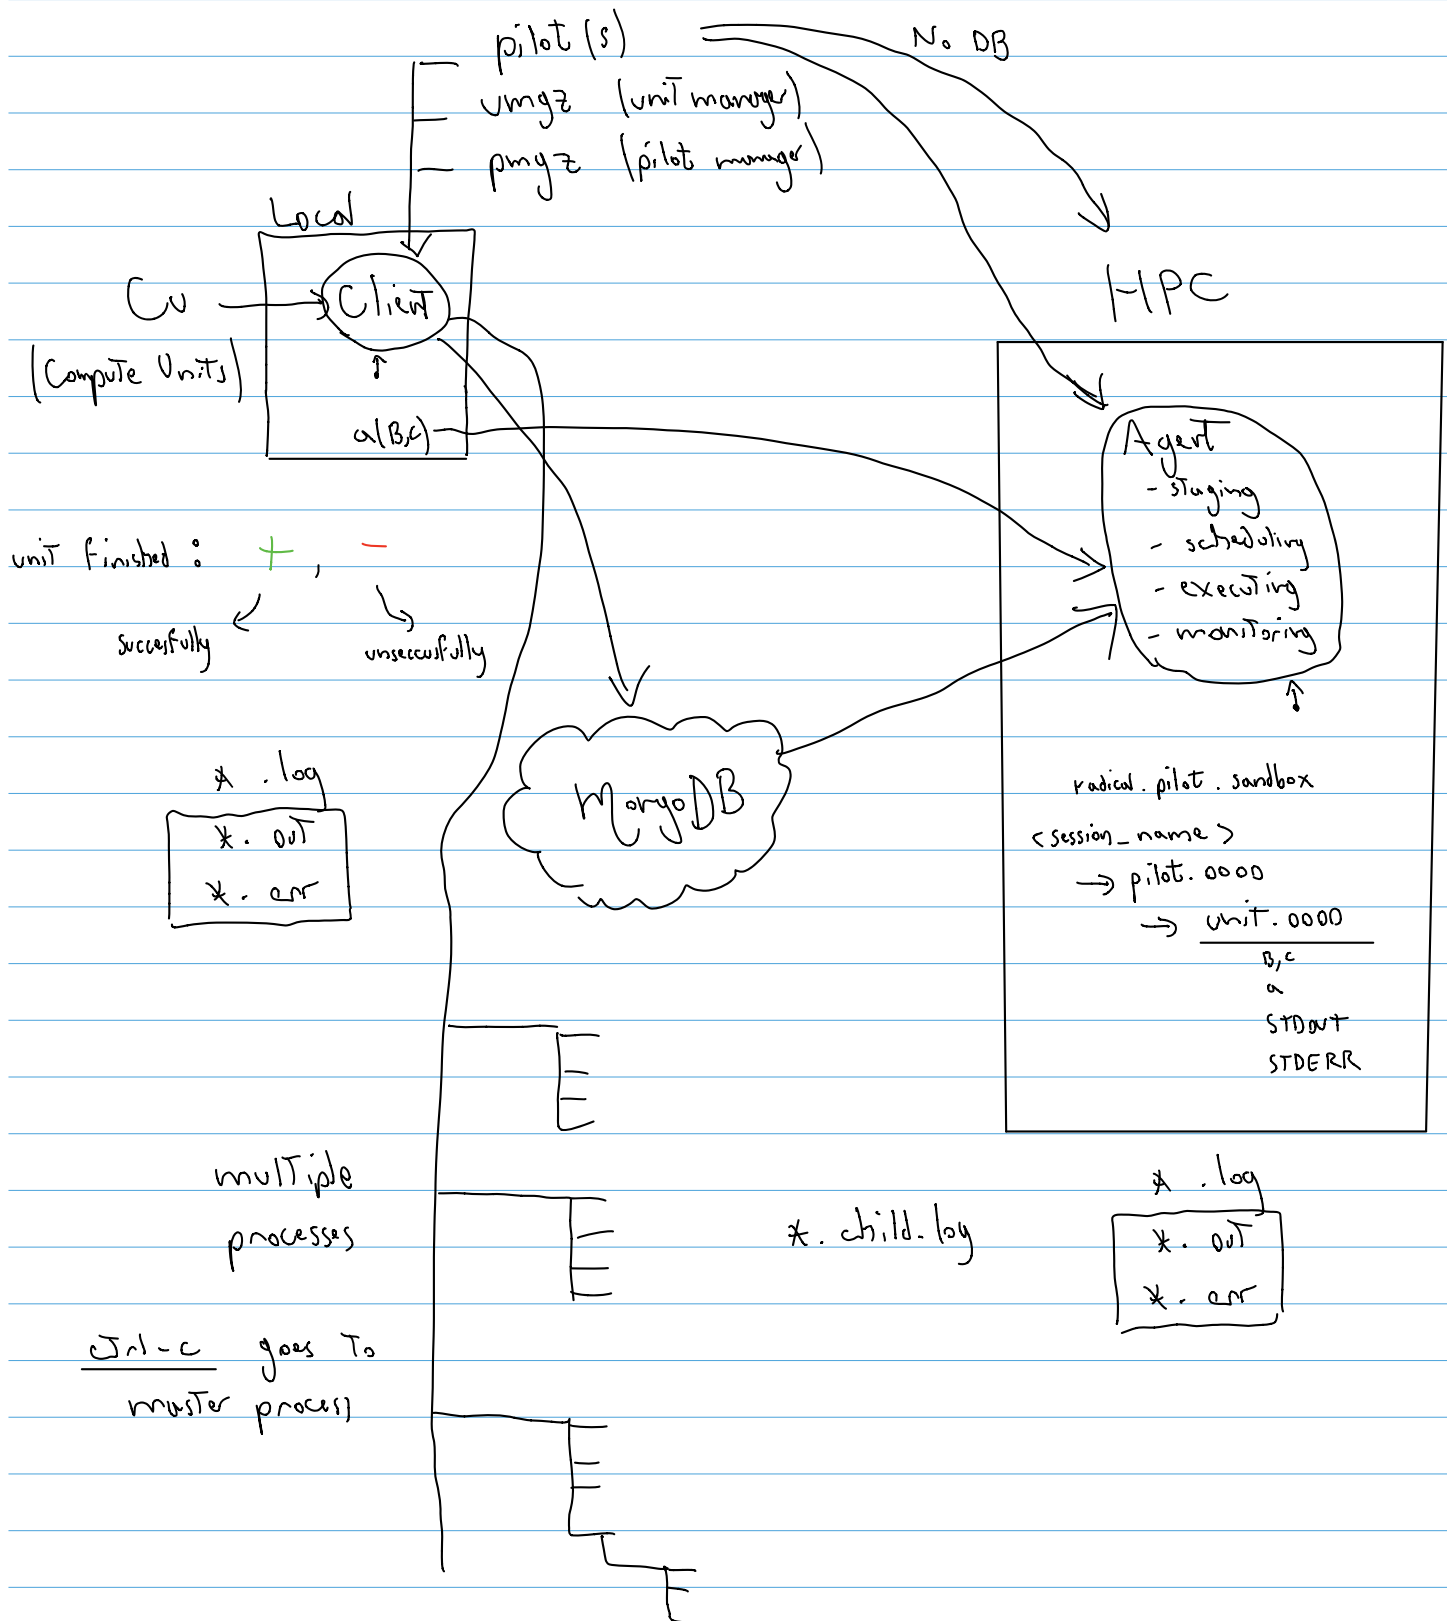 pilot(s)
No DB
umgr (unit manager)
pmgr (pilot manager)
Local
Cu
Client
HPC
(Compute Units)
a(B,c)
Agent
- staging
- scheduling
- executing
- monitoring
unit finished : + , -
succesfully
unseccusfully
* .log
*. out
*. err
MongoDB
radical.pilot.sandbox
<session_name>
→ pilot.0000
→ unit.0000
B,c
a
STDOUT
STDERR
multiple
processes
*.child.log
* .log
*. out
*. err
ctrl-c goes to
master process